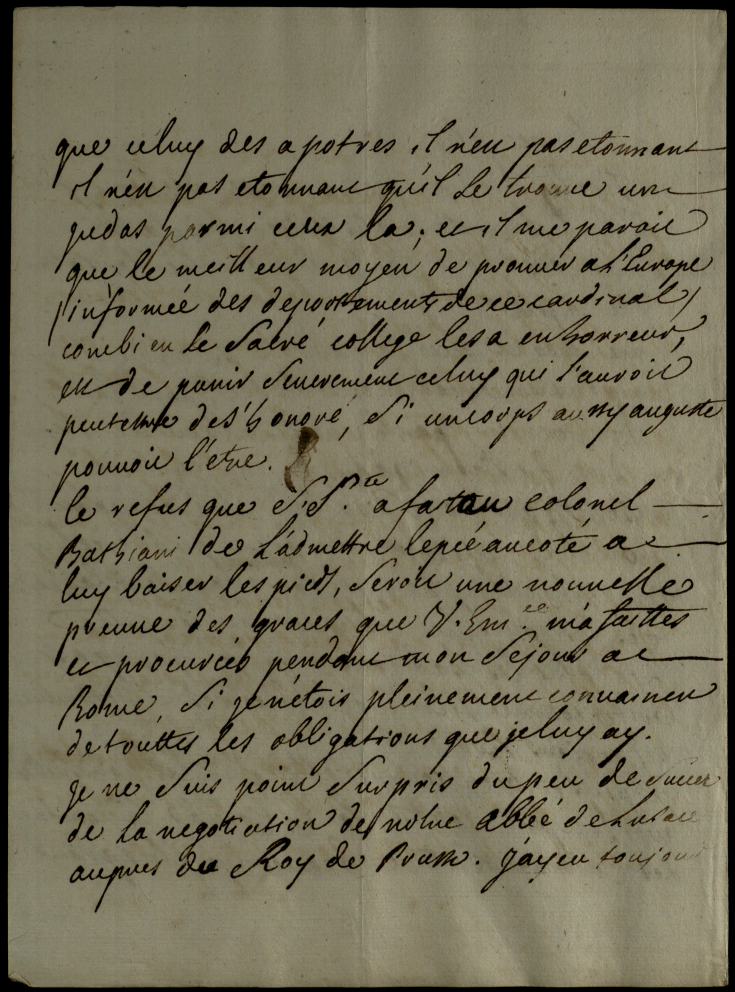 que celuy des apotres, il n'est pas etonnant
il n'est pas etonnant qu'il se trouve un
judas parmi ceux la; et il me paroit
que le meilleur moyen de prouver a l'Europe
(informée des deportements de ce cardinal)
combien le Sacré college les a en horreur,
est de punir severement celuy qui l'auroit
peutetre des'honoré, si un corps aussy auguste
pouvoit l'etre.
le refus que S. S.ta a fait au colonel
Bathiani de L'admettre l'epée au coté a
luy baiser les pieds, seroit une nouvelle
preuve des graces que V. Em.ce m'a faittes
et procurées pendant mon sejour a
Rome, si je n'étois pleinement convaincu
de touttes les obligations que je luy ay.
je ne suis point surpris du peu de succez
de la negotiation de notre abbé de
aupres du Roy de Prusse. j'ay eu toujours